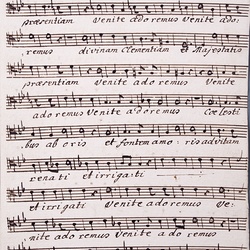 præsentiam Venite adoremus Venite ado:
remus divinam Clementiam et Majestatis
præsentiam Venite adoremus Venite
adoremus Venite adoremus Coelesti
bus ab oris et fontem amo: ris ad vitam
renati et irriga:ti
et irrigati Venite adoremus Ve:
nite adoremus Venite adoremus